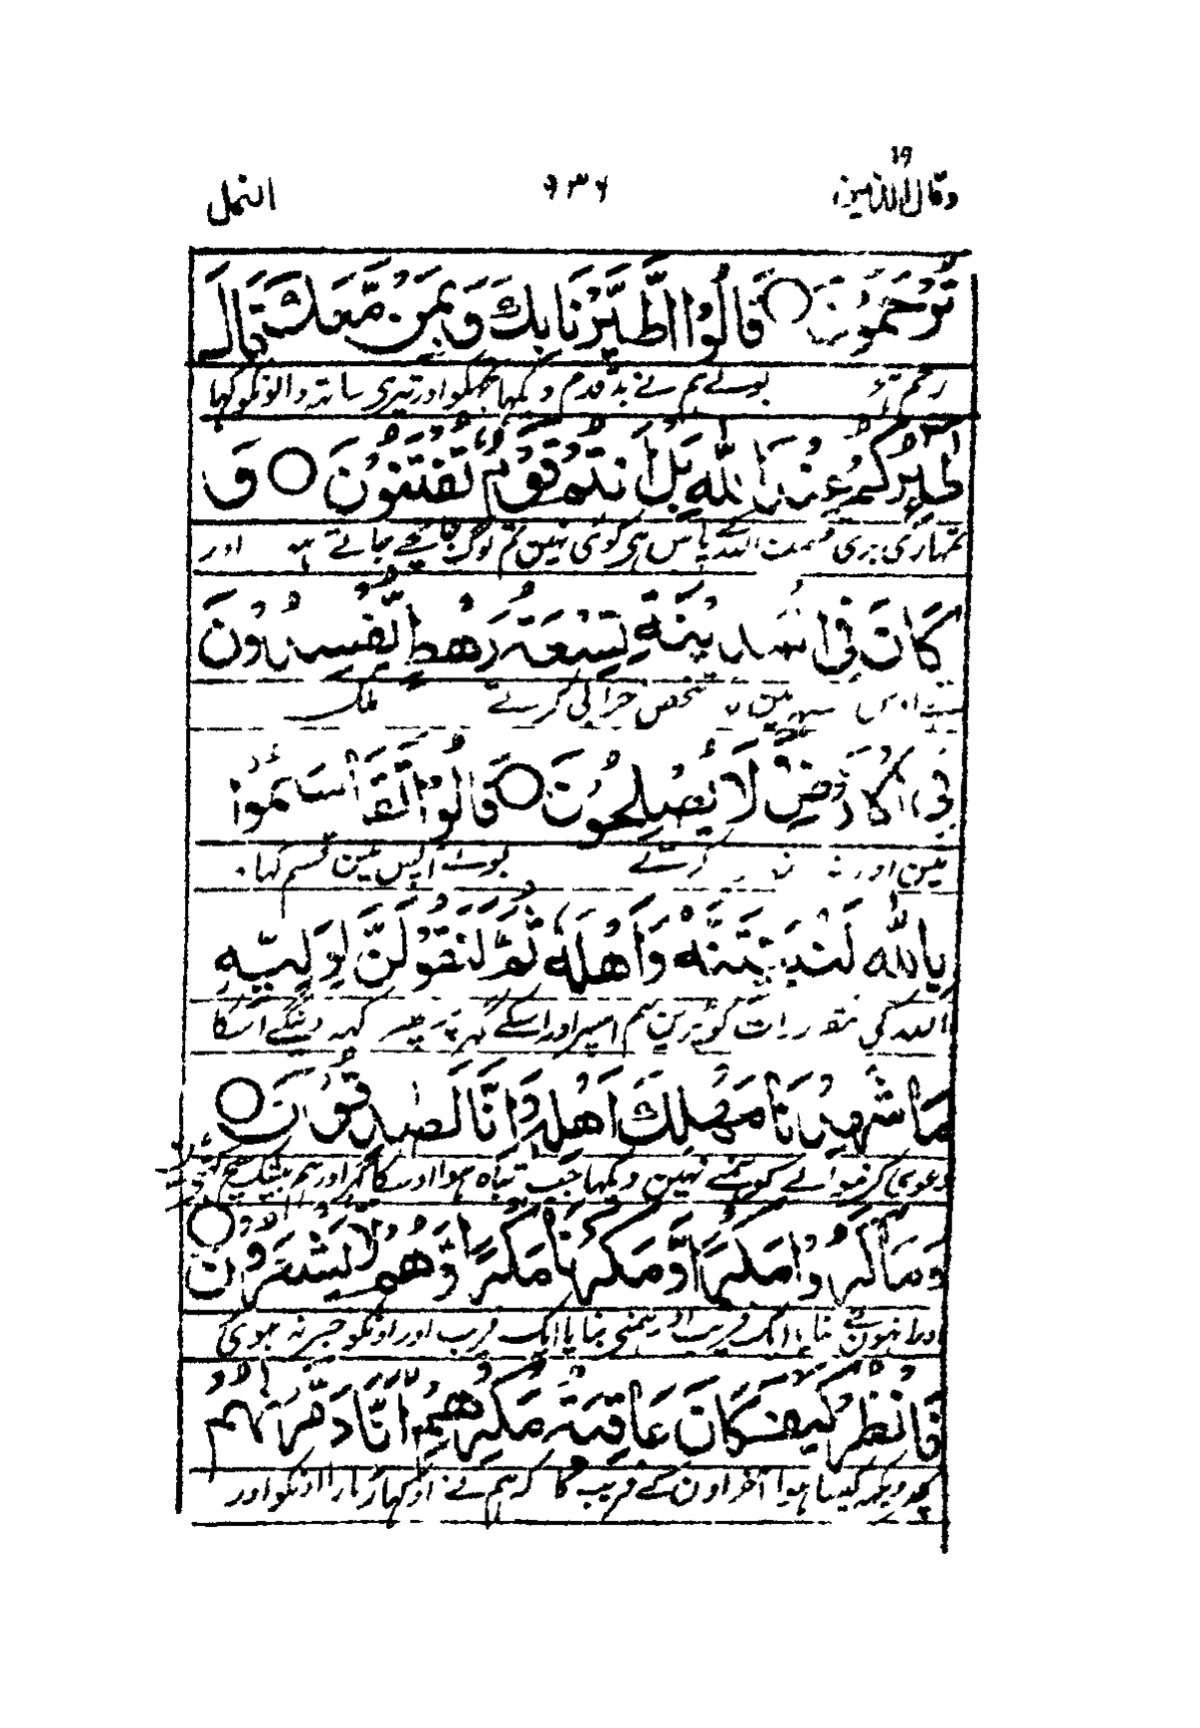 وقال الذین ۱۹ ۶۳۶ النمل
تُرْحَمُوْنَ ○ قَالُوا اطَّيَّرْنَا بِكَ وَبِمَنْ مَّعَكَ قَالَ
رحم ہو بولے ہم نے بد قدم دیکھا تجھکو اور تیری ساتھ والونکو کہا
طٰٓئِرُكُمْ عِنْدَ اللّٰهِ بَلْ اَنْتُمْ قَوْمٌ تُفْتَنُوْنَ ○ وَ
تمہاری بری قسمت اللہ کے پاس ہی کوئی نہین تم لوگ جانچے جاتے ہو اور
كَانَ فِی الْمَدِيْنَةِ تِسْعَةُ رَهْطٍ يُّفْسِدُوْنَ
تھے اوس شہر مین شخص خرابی کرتے ملک
فِی الْاَرْضِ وَلَا يُصْلِحُوْنَ ○ قَالُوْا تَقَاسَمُوْا
مین اور نہ کرتے بولے آپس مین قسم کہا
بِاللّٰهِ لَنُبَيِّتَنَّهٗ وَاَهْلَهٗ ثُمَّ لَنَقُوْلَنَّ لِوَلِيِّهٖ
اللہ کی مقرر رات کو پڑین ہم اسپر اور اسکے گہر پر پہر کہہ دینگے اسکا
مَا شَهِدْنَا مَهْلِكَ اَهْلِهٖ وَاِنَّا لَصٰدِقُوْنَ ○
دعوی کرنیوالے کو ہمنے نہین دیکہا جب تباہ ہوا اوسکا گہر اور ہم بیشک سچ
وَمَكَرُوْا مَكْرًا وَّمَكَرْنَا مَكْرًا وَّهُمْ لَا يَشْعُرُوْنَ ○
اور انہون نے بنایا ایک فریب اور ہمنی بنایا ایک فریب اور اونکو خبر نہ ہوی
فَانْظُرْ كَيْفَ كَانَ عَاقِبَةُ مَكْرِهِمْ اَنَّا دَمَّرْنٰهُمْ
پہر دیکہہ کیسا ہوا آخر اون کے فریب کا کہ ہم نے اوکہاڑ مارا اونکو اور